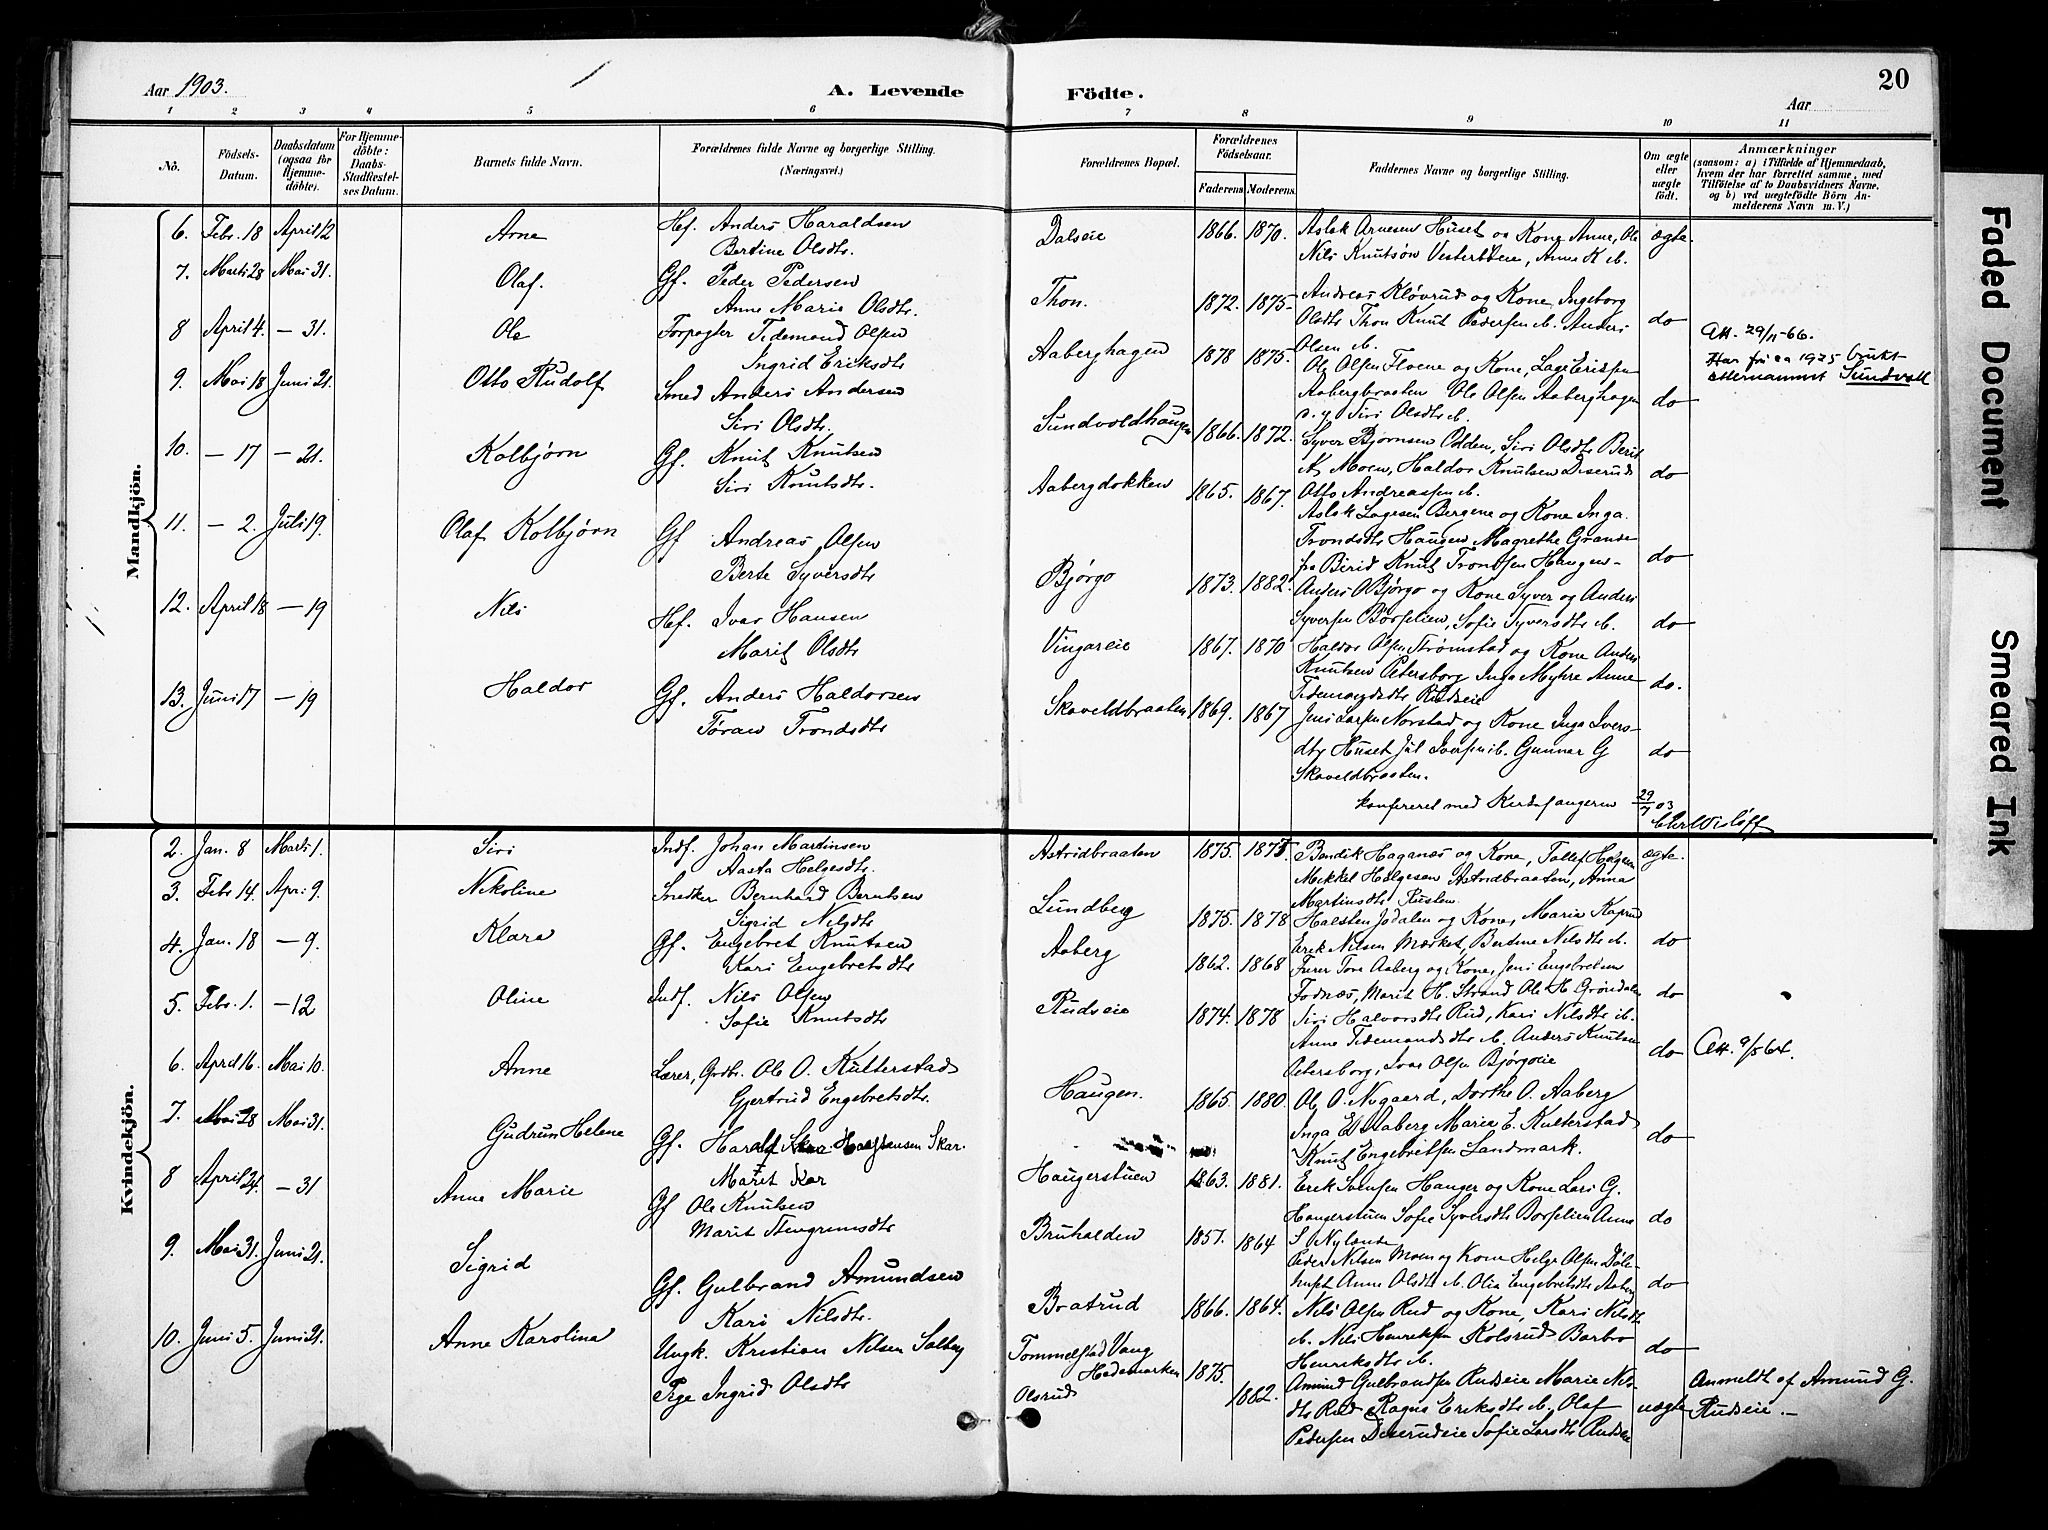 Aar 1903.
A. Levende Födte.
20
Aar
1 2 3 4 5 6 7 8 9 10 11
No.
Födsels-Datum.
Daabsdatum (ogsaa for Hjemmedöbte).
For Hjemmedöbte: Daabs-Stadfæstelses Datum.
Barnets fulde Navn.
Forældrenes fulde Navne og borgerlige Stilling. (Næringsvei.)
Forældrenes Bopæl.
Forældrenes Födselsaar.
Faderens Moderens.
Faddernes Navne og borgerlige Stilling.
Om ægte eller uægte födt.
Anmærkninger
(saasom: a) i Tilfælde af Hjemmedaab, hvem der har forrettet samme, med Tilföielse af to Daabsvidners Navne. og b) ved uægtefödte Börn Anmelderens Navn m. V.)
Mandkjön.
6. Febr. 18 April 12 Arne Hef. Anders Haraldsen
Bertine Olsdtr.
Dalseie 1866. 1870. Aslak Arnesen Huset og Kone Anne, Ole
Nils Knutsøn Vesterbøeie, Anne K. M. ægte.
7. Marts 28 Mai 31. Olaf. Gf. Peder Pedersen
Anne Marie Olsdtr
Thon. 1872. 1875. Andreas Kløvrud og Kone Ingeborg
Olsdtr Thon Knut Pedersen M. Anders
Olsen M. do
8 April 4. — 31. Ole Forpagter Tidemand Olsen
Ingrid Eriksdtr
Aaberghagen 1878 1875. Ole Olsen Floene og Kone, Lage Eriksen
Aabergbraaten Ole Olsen Aaberghagen
o. y. Siri Olsdtr M. do
Att. 29/11-66.
Har fra ca 1925 brukt
etternamnet Sundvoll
9. Mai 18 Juni 21. Otto Rudolf Smed Anders Andersen
Siri Olsdtr.
Sundvoldhaugen 1866. 1872. Syver Bjørnsen Odden, Siri Olsdtr Berit
K. Moen, Haldor Knutsen Diserud
Otto Andreassen M. do
10. — 17 — 21. Kolbjørn Gf. Knut Knutsen
Siri Knutsdtr.
Aabergdokken 1865. 1867. Aslak Lagesen Bergene og Kone Inga
Trondsdtr Haugen Magrethe Grande
fra Birid Knut Trondsen Haugen- do
11. — 2. Juli 19. Olaf Kolbjørn Gf Andreas Olsen
Berte Syversdtr
Bjørgo 1873. 1882. Anders O Bjørgo og Kone Syver og Anders
Syversen Børselien, Sofie Syversdtr M. do
12. April 18 — 19 Nils Hef. Ivar Hansen
Marit Olsdtr
Vingareie 1867. 1870 Haldor Olsen Strømstad og Kone Anders
Knutsen Petersborg Inga Myhre Anne
Tidemandsdtr Rudseie do.
13. Juni 17 — 19 Haldor Gf. Anders Haldorsen
Tøran Trondsdtr
Skaveldbraaten 1869. 1867 Jens Larsen Norstad og Kone Inga Ivers-
dtr Huset Jul Iversen ib. Gunnar G
Skaveldbraaten. do
konfereret med Kirkesangeren 29/7 03
Chr Wisløff
Kvindekjön.
2. Jan. 8 Marts 1. Siri Indf. Johan Martinsen
Aasta Helgesdtr.
Astridbraaten 1875. 1875 Bendik Haganæs og Kone, Tollef Hagen
Mikkel Helgesen Astridbraaten, Anna
Martinsdtr Rusten. ægte.
3. Febr 14. Apr: 9. Nikoline Snedker Bernhard Berntsen
Sigrid Nilsdtr.
Lundberg 1875. 1878 Halsten Jødalen og Kone, Marie Kaprud
Erik Nilsen Mærket, Berthine Nilsdtr M. do
4. Jan. 18 — 9. Klara Gf. Engebret Knutsen
Kari Engebretsdtr
Aaberg 1862. 1868 Furer Tore Aaberg og Kone, Jens Engebretsen
Fodnæs, Marit H. Strand Ole H. Grøndalen do
5. Febr. 1. — 12 Oline Indf. Nils Olsen
Sofie Knutsdtr
Rudseie 1874. 1878 Siri Halvorsdtr Rud, Kari Nilsdtr ib.
Anne Tidemandsdtr M. Anders Knutsen
Petersborg, Ivar Olsen Bjørgoeie do Att. 9/5 64.
6 April 16. Mai 10. Anne Lærer, Grdbr. Ole O. Kulterstad
Gjertrud Engebretsdtr.
Haugen. 1865. 1880. Ole O. Nygaard, Dorthe O. Aaberg
Inga E. Aaberg Maria E. Kulterstad
Knut Engebretsen Landmark. do
7. Mai 28 Mai 31. Gudrun Helene Gf. Harald Haagensen Skar.
Marit Skar
Haugerstuen 1863. 1881. Erik Svensen Hauger og Kone Lars G.
Haugerstuen Sofie Syversdtr Børselien Anne
S Nylende do
8 April 24. — 31 Anne Marie Gf Ole Knutsen
Marit Stengrimsdtr
Bruhalden 1857. 1864 Peder Nilsen Moen og Kone Helge Olsen Døle-
hust Anne Olsdtr M. Olia Engebretsdtr Aaberg do
9. Mai 31. Juni 21. Sigrid Gf. Gulbrand Amundsen
Kari Nilsdtr.
Bratrud 1866. 1864. Nils Olsen Rud og Kone, Kari Nilsdtr
M. Nils Henriksen Kolsrud Barbro
Henriksdtr M. do
10. Juni 5. Juni 21. Anne Karolina Ungk. Kristian Nilsen Solberg
Pige Ingrid Olsdtr
Tommelstad Vang
Hedemarken 1875.
Olsrud 1882. Amund Gulbrandsen Rudseie Marie Nils-
dtr Rud Ragna Eriksdtr M. Olaf
Pedersen Diserudeie Sofie Larsdtr Rudseie uægte
Anmeldt af Amund G.
Rudseie. —
Faded Document
Smeared Ink